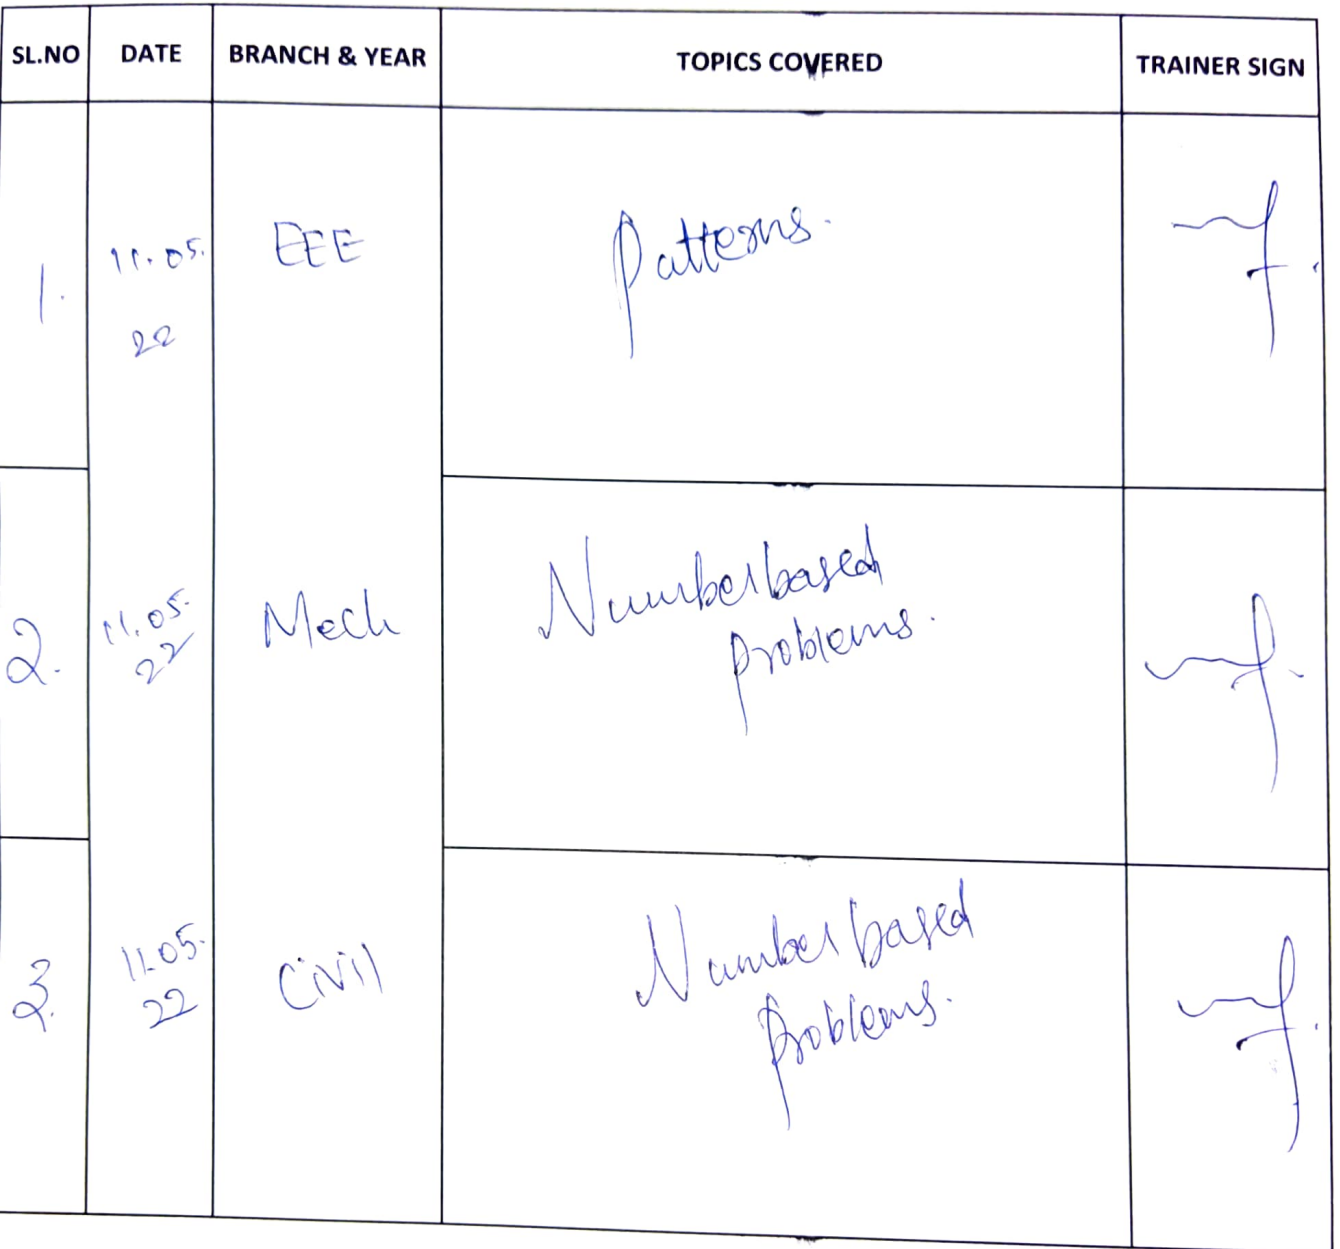 SL.NO DATE BRANCH & YEAR TOPICS COVERED TRAINER SIGN
1. 11.05. EEE Patterns.
22
2. 11.05. Mech Number based
22 problems.
3. 11.05. Civil Number based
22 Problems.